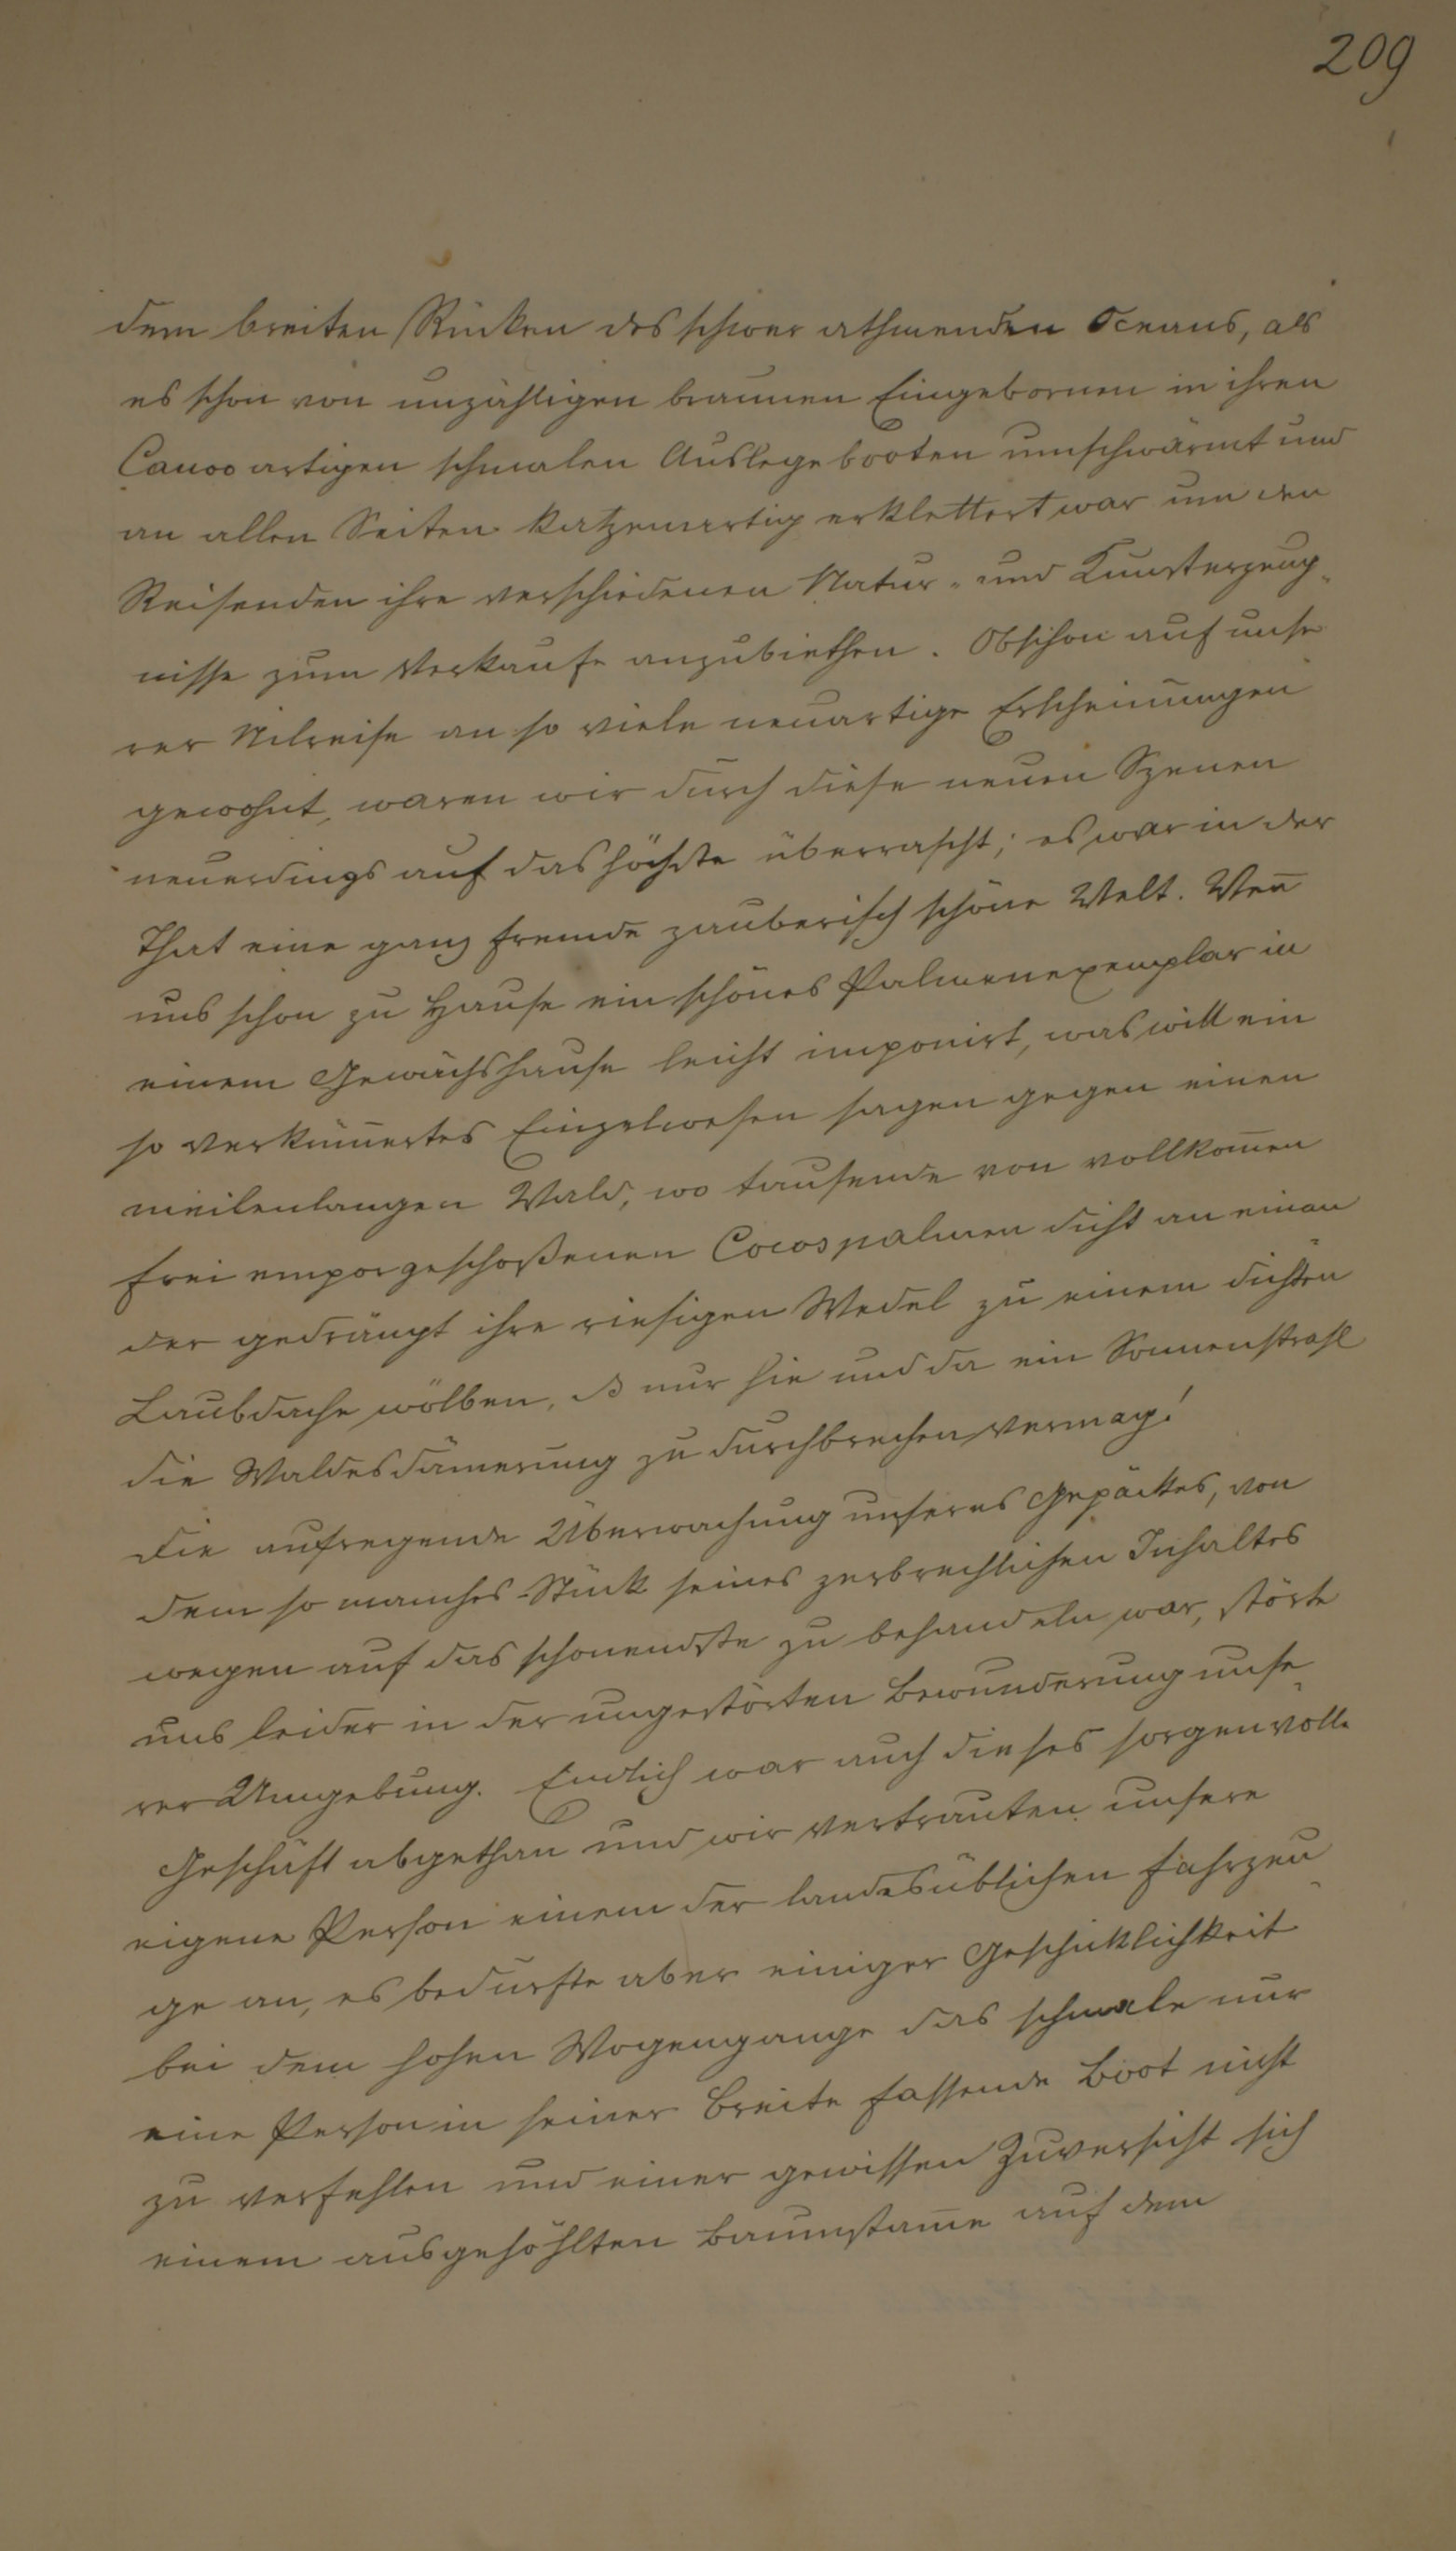 209
dem breiten Rücken des schwer athmenden Oceans, als
es schon von unzähligen braunen Eingebornen in ihren
Canoo artigen schmalen Auslegebooten umschwärmt und
an allen Seiten katzenartig erklettert war um den
Reisenden ihre verschiedenen Natur- und Kunsterzeug-
nisse zum Verkaufe anzubiethen. Obschon auf unse-
rer Nilreise an so viele neuartige Erscheinungen
gewohnt, waren wir durch diese neuen Szenen
neuerdings auf das höchste überrascht; es war in der
That eine ganz fremde zauberisch schöne Welt. Weñ
uns schon zu Hause ein schönes Palmenexemplar in
einem Gewächshause leicht imponirt, was will ein
so verkum̅ertes Einzelwesen sagen gegen einen
meilenlangen Wald, wo tausende von vollkom̅en
frei emporgeschoßenen Cocospalmen dicht an einan-
der gedrängt ihre riesigen Wedel zu einem dichten
Laubdache wölben, ds nur hie und da ein Sonnenstrahl
die Waldesdäm̅erung zu durchbrechen vermag!
Die aufregende Überwachung unseres Gepäckes, von
dem so manches Stück seines zerbrechlichen Inhaltes
wegen auf das schonendste zu behandeln war, störte
uns leider in der ungestörten Bewunderung unse-
rer Umgebung. Endlich war auch dieses sorgenvolle
Geschäft abgethan und wir vertrauten unsere
eigene Person einem der landesüblichen Fahrzeu-
ge an, es bedurfte aber einiger Geschicklichkeit
bei dem hohen Wogengange das schmale nur
eine Person in seiner Breite fassende Boot nicht
zu verfehlen und einer gewissen Zuversicht sich
einem ausgehöhlten Baumstam̅e auf dem